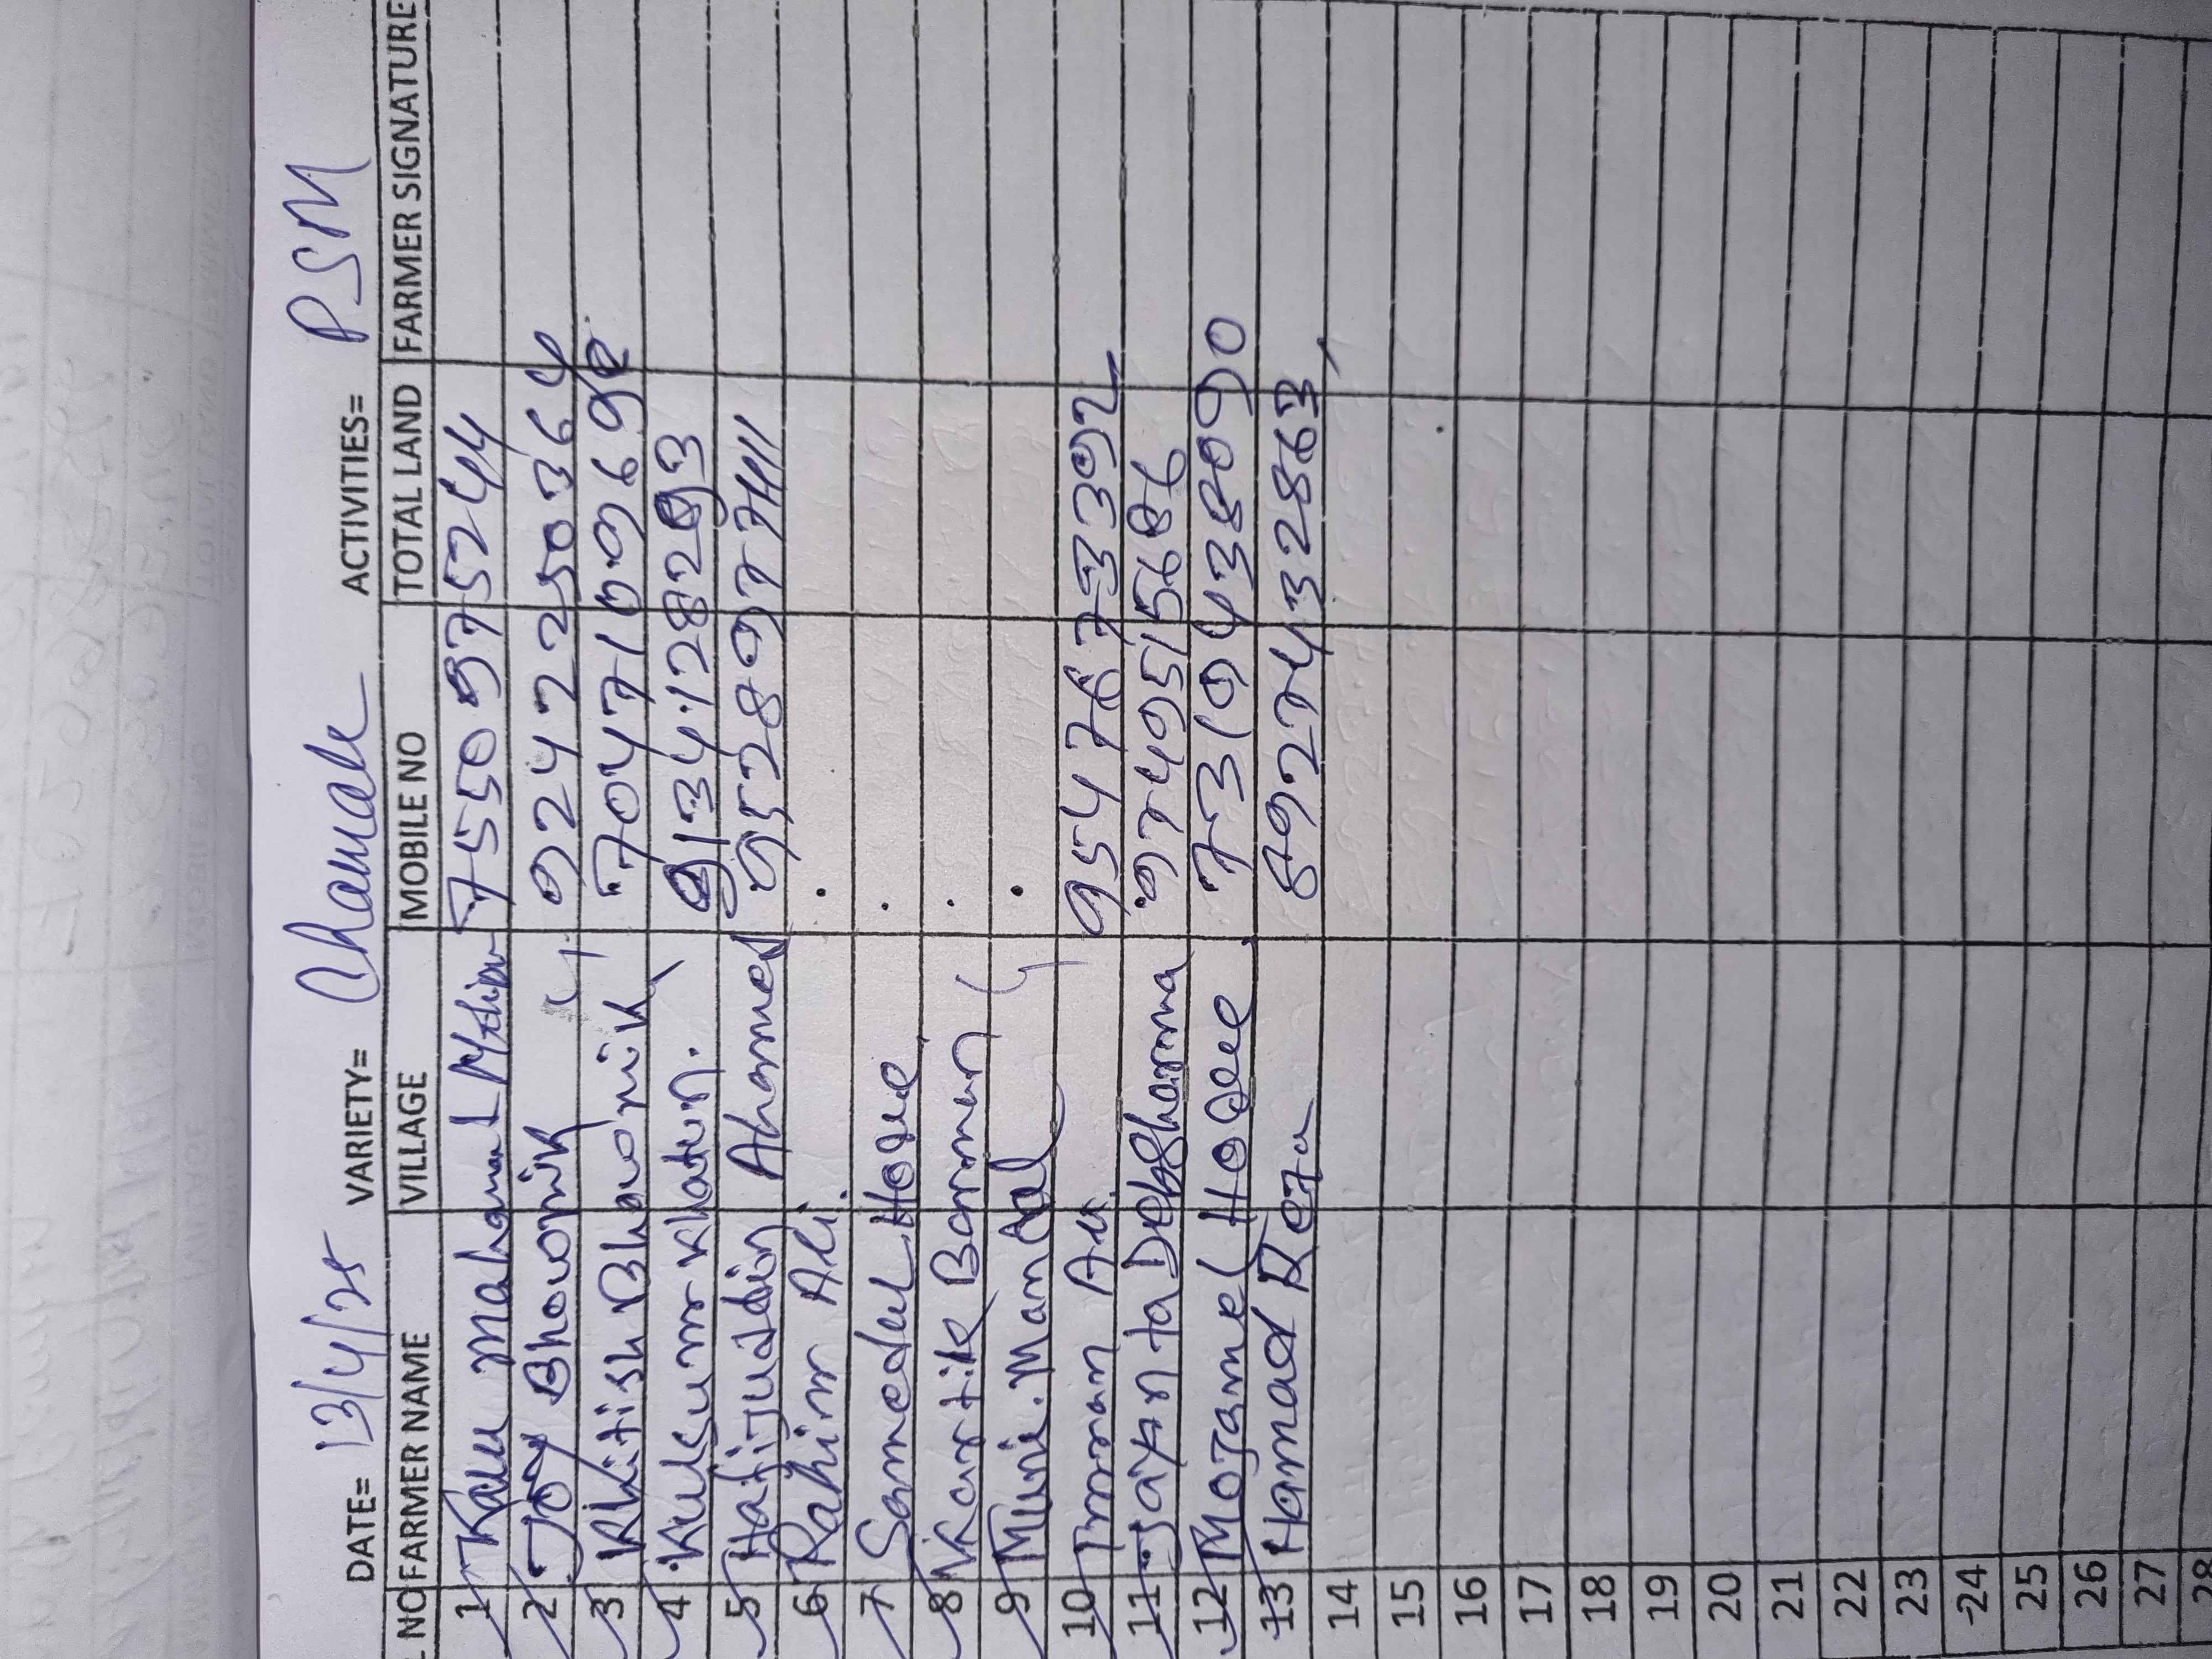 DATE= 13/4/25 VARIETY= Chamak ACTIVITIES= PSM
L NO FARMER NAME VILLAGE MOBILE NO TOTAL LAND FARMER SIGNATURE
1 Mahamad 7550975244
2 Joy Bhowmik 9247225036
3 Khitish Bhawmik
4 Kulsum Khatun. 9134128293
5 Hafijuddin Ahamed
6 Rahim Ali.
7 Samedul Hoque
8 Kartik Barman
9 Mandal
10 Imran Ali 9547673392
11 Jayanta Debsharma 9749515686
12 Mojamel Hoque
13 Hamad Reza 8927432863
14
15
16
17
18
19
20
21
22
23
24
25
26
27
28